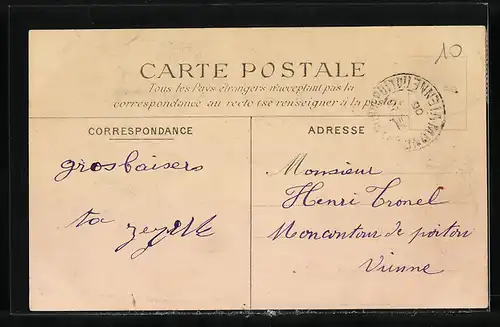 10
CARTE POSTALE
Tous les Pays étrangers n'acceptant pas la
correspondance au recto (se renseigner à la poste)
CORRESPONDANCE
ADRESSE
gros baisers
ta
Monsieur
Henri Tronel
Moncontour de poitou
Vienne